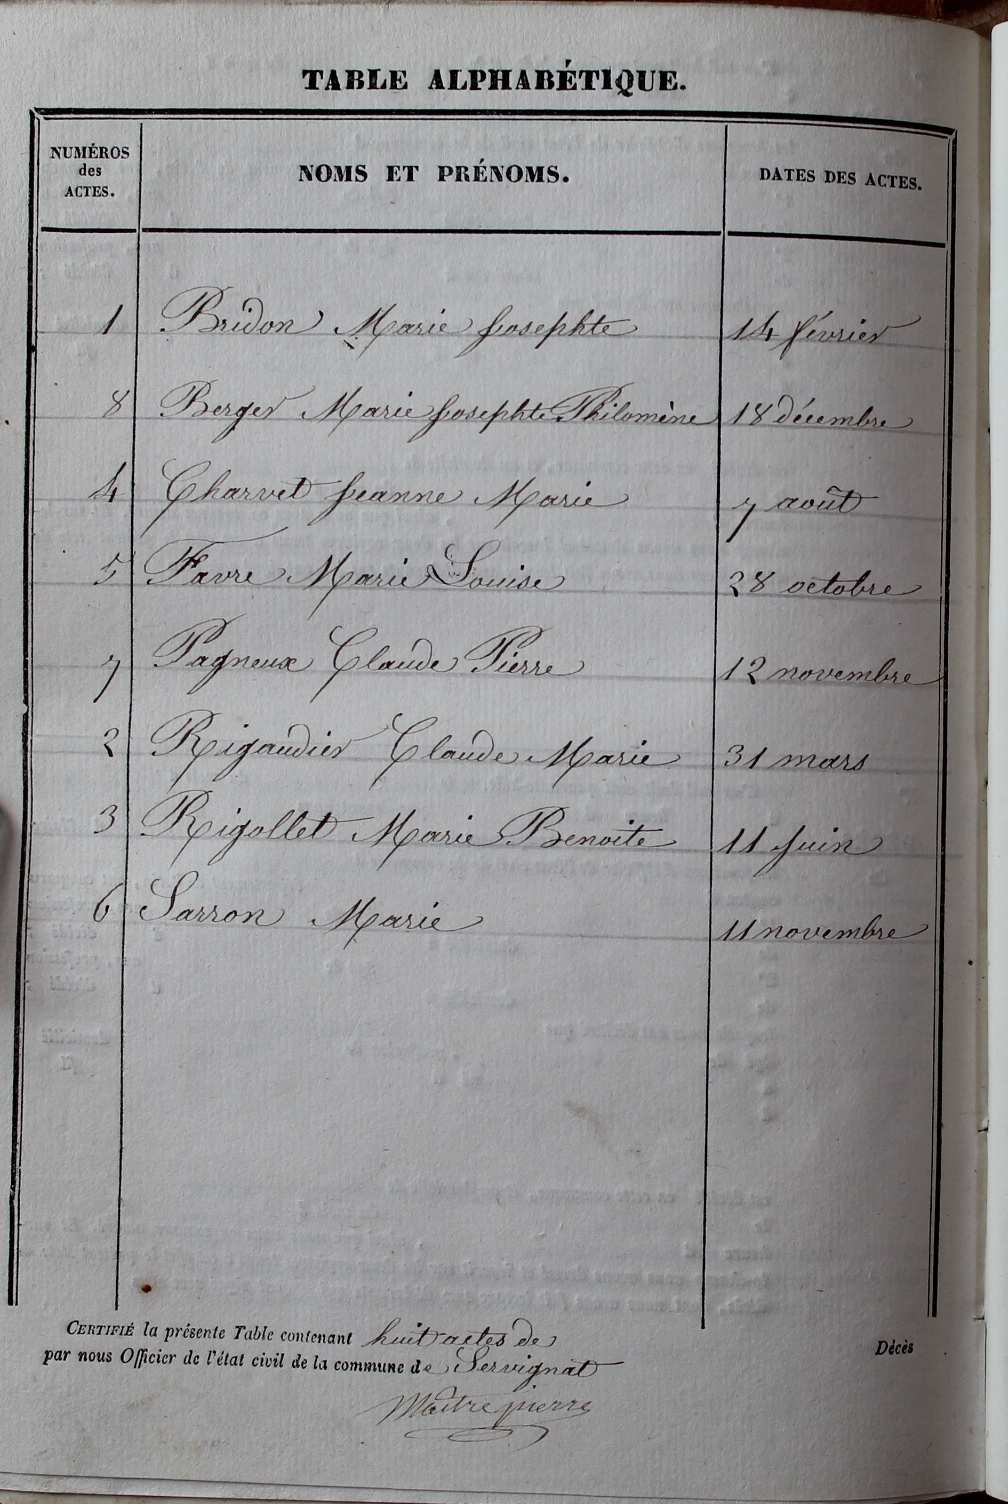 TABLE ALPHABÉTIQUE.
NUMÉROS des ACTES. NOMS ET PRÉNOMS. DATES DES ACTES.
1 Bridon Marie Josephte 14 février
8 Berger Marie Josephte Philomène 18 décembre
4 Charvet Jeanne Marie 7 août
5 Favre Marie Louise 28 octobre
7 Pagneux Claude Pierre 12 novembre
2 Rigaudier Claude Marie 31 mars
3 Rigollet Marie Benoite 11 Juin
6 Sarron Marie 11 novembre
CERTIFIÉ la présente Table contenant huit actes de Décès
par nous Officier de l'état civil de la commune de Servignat
Maîtrepierre